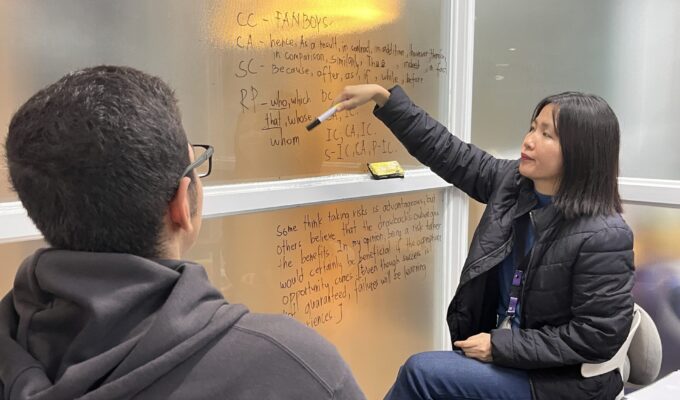 CC - FANBOYS.
CA - hence, As a result, in contrast, in addition, however, therefore,
in comparison, similarly, Thus, indeed, in fact
SC - Because, after, as, if, while, before
RP - who, which DC
that, whose IC.
whom IC, CA, IC.
S-IC, CA, P-IC.
Some think taking risks is advantageous, but
others believe that the drawbacks outweigh
the benefits. In my opinion, being a risk taker
would certainly be beneficial if the
opportunity comes. Even though success is
guaranteed, failures will be learning